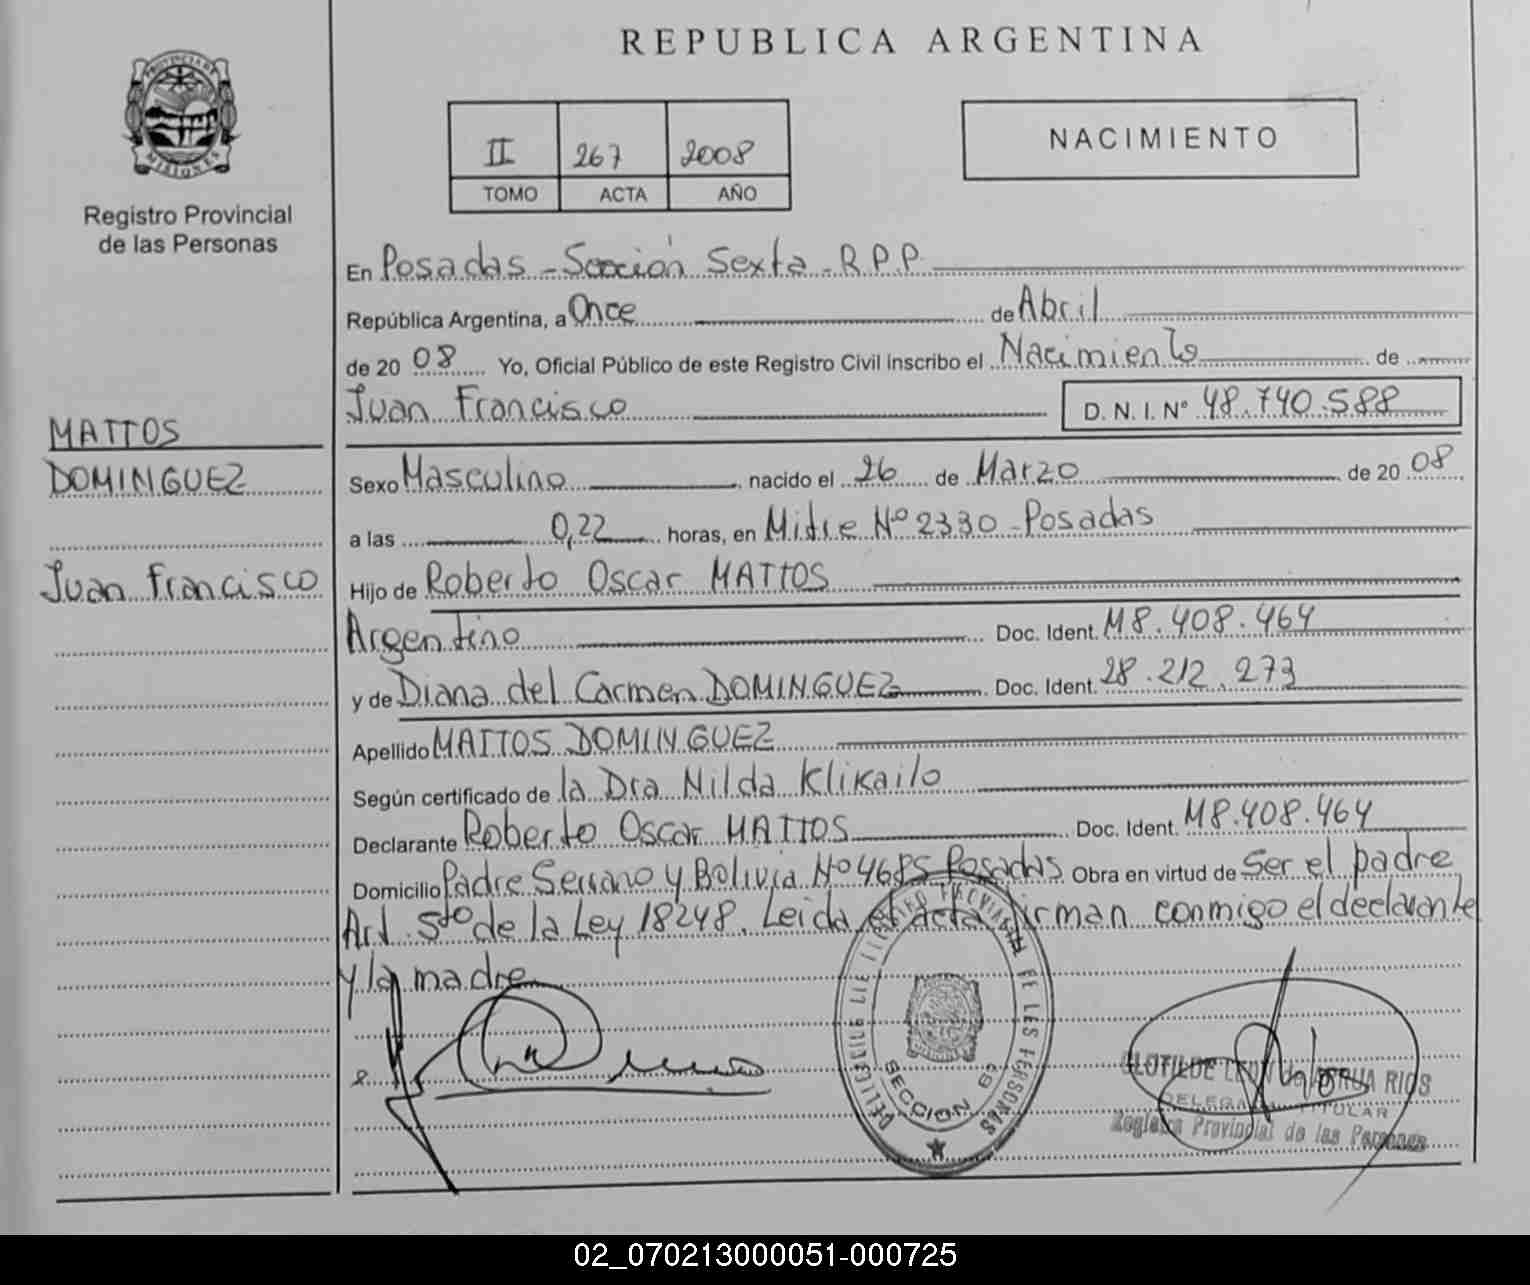 REPUBLICA ARGENTINA
PROVINCIA DE
MISIONES
Registro Provincial
de las Personas
II 267 2008
TOMO ACTA AÑO
NACIMIENTO
En Posadas - Sección Sexta - R.P.P.
República Argentina, a Once de Abril
de 20 08 Yo, Oficial Público de este Registro Civil inscribo el Nacimiento de
Juan Francisco D. N. I. N° 48.740.588
MATTOS
DOMINGUEZ
Juan Francisco
Sexo Masculino nacido el 26 de Marzo de 20 08
a las 0,22 horas, en Mitre Nº 2330 - Posadas
Hijo de Roberto Oscar MATTOS
Argentino Doc. Ident. M8.408.464
y de Diana del Carmen DOMINGUEZ Doc. Ident. 28.212.273
Apellido MATTOS DOMINGUEZ
Según certificado de la Dra Nilda Klikailo
Declarante Roberto Oscar MATTOS Doc. Ident. M8.408.464
Domicilio Padre Serrano y Bolivia Nº 4685 Posadas Obra en virtud de Ser el padre
Art. 5to de la Ley 18248. Leida el acta firman conmigo el declarante
y la madre
SECCION 6ª
CLOTILDE RIOS
DELEGADA TITULAR
Registro Provincial de las Personas
02_070213000051-000725